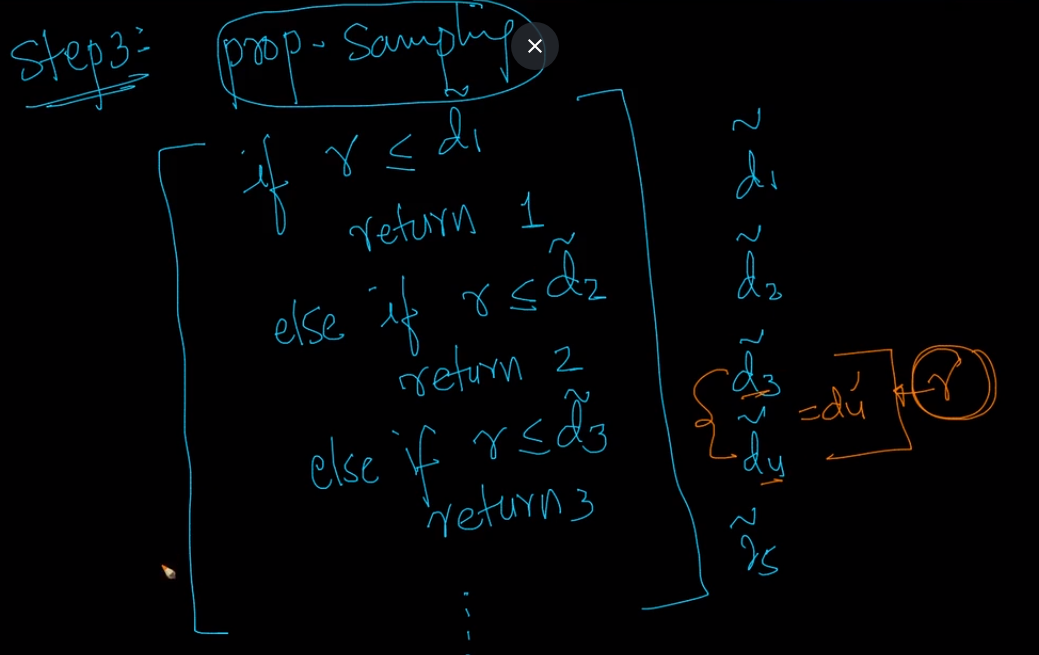 Step3:
prop-Sampling
if r ≤ d̃1
return 1
else if r ≤ d̃2
return 2
else if r ≤ d̃3
return 3
d̃1
d̃2
d̃3
d̃4
= d4' r
d̃5